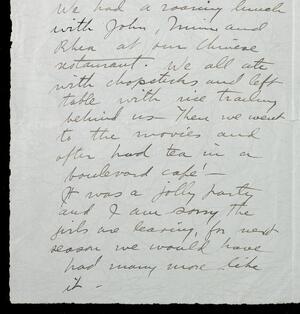 We had a roaring lunch
with John, Mimi and
Rhea at our Chinese
restaurant. We all ate
with chopsticks and left
table with rice trailing
behind us - Then we went
to the movies and
after had tea in a
boulevard café! -
It was a jolly party
and I am sorry the
girls are leaving, for next
season we would have
had many more like
it -